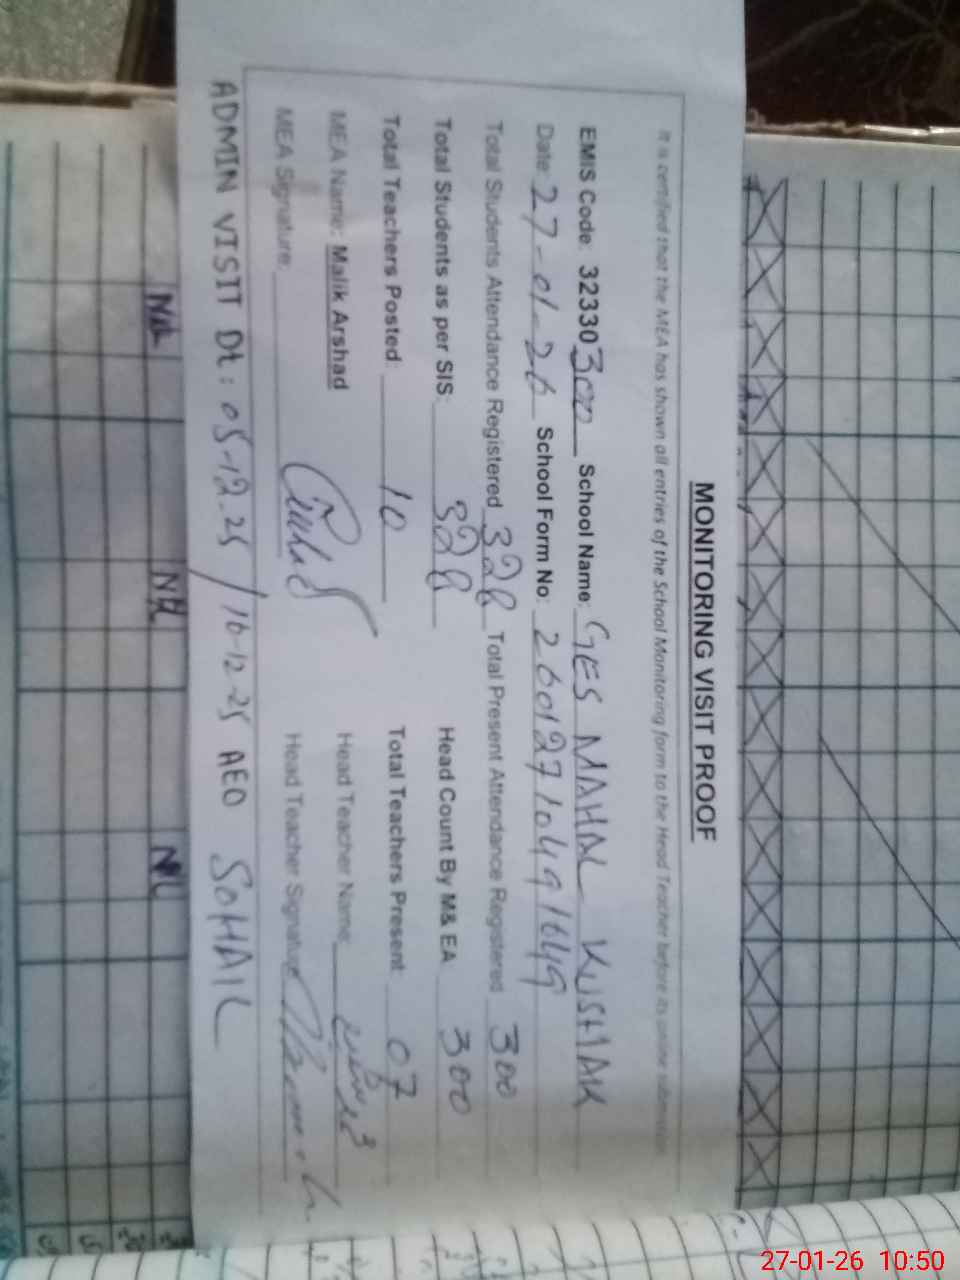 MONITORING VISIT PROOF
It is certified that the MEA has shown all entries of the School Monitoring form to the Head Teacher before its online submission
EMIS Code 32330300 School Name: GES MAHAL KUSHAK
Date: 27-01-26 School Form No: 26012710491649
Total Students Attendance Registered 328 Total Present Attendance Registered 300
Total Students as per SIS: 328 Head Count By M& EA 300
Total Teachers Posted: 10 Total Teachers Present 07
MEA Name: Malik Arshad Head Teacher Name:
MEA Signature: Head Teacher Signature
ADMIN VISIT Dt: 05-12-25 / 16-12-25 AEO SOHAIL
Nil Nil Nil
27-01-26 10:50